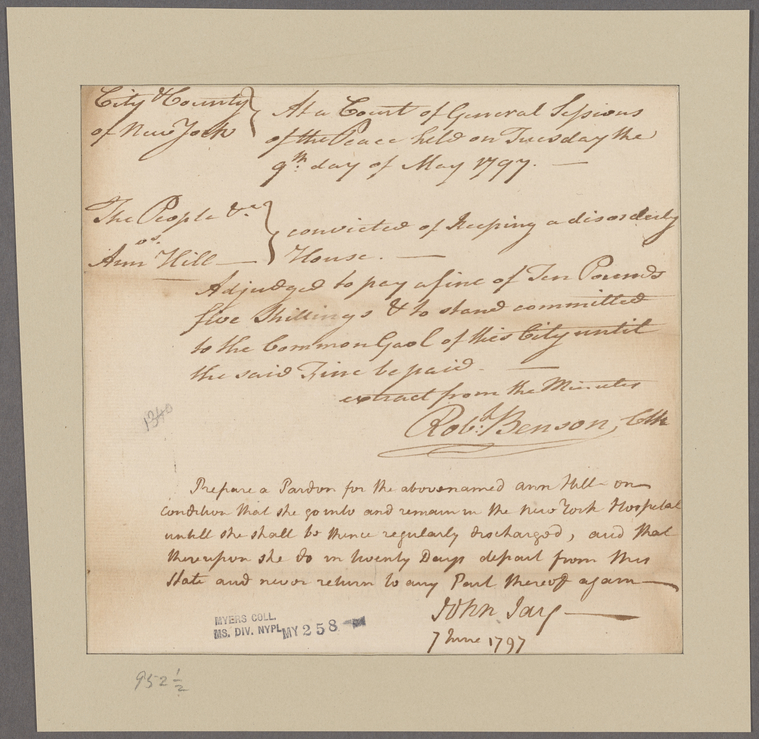 City & County
of New York
At a Court of General Sessions
of the Peace held on Tuesday the
9th. day of May 1797. —
The People &c
vs.
Ann Hill —
convicted of Keeping a disorderly
House. —
Adjudged to pay a fine of Ten Pounds
five Shillings & to stand committed
to the Common Gaol of this City until
the said Fine be paid. —
extract from the Minutes
Robt. Benson, Clk
1340
Prepare a Pardon for the abovenamed Ann Hill on
condition that she go into and remain in the New York Hospital
untill she shall be thence regularly discharged, and that
thereupon she do in twenty Days depart from this
State and never return to any Part thereof again —
John Jay —
7 June 1797
MYERS COLL.
MS. DIV. NYPL MY 258
952 1/2